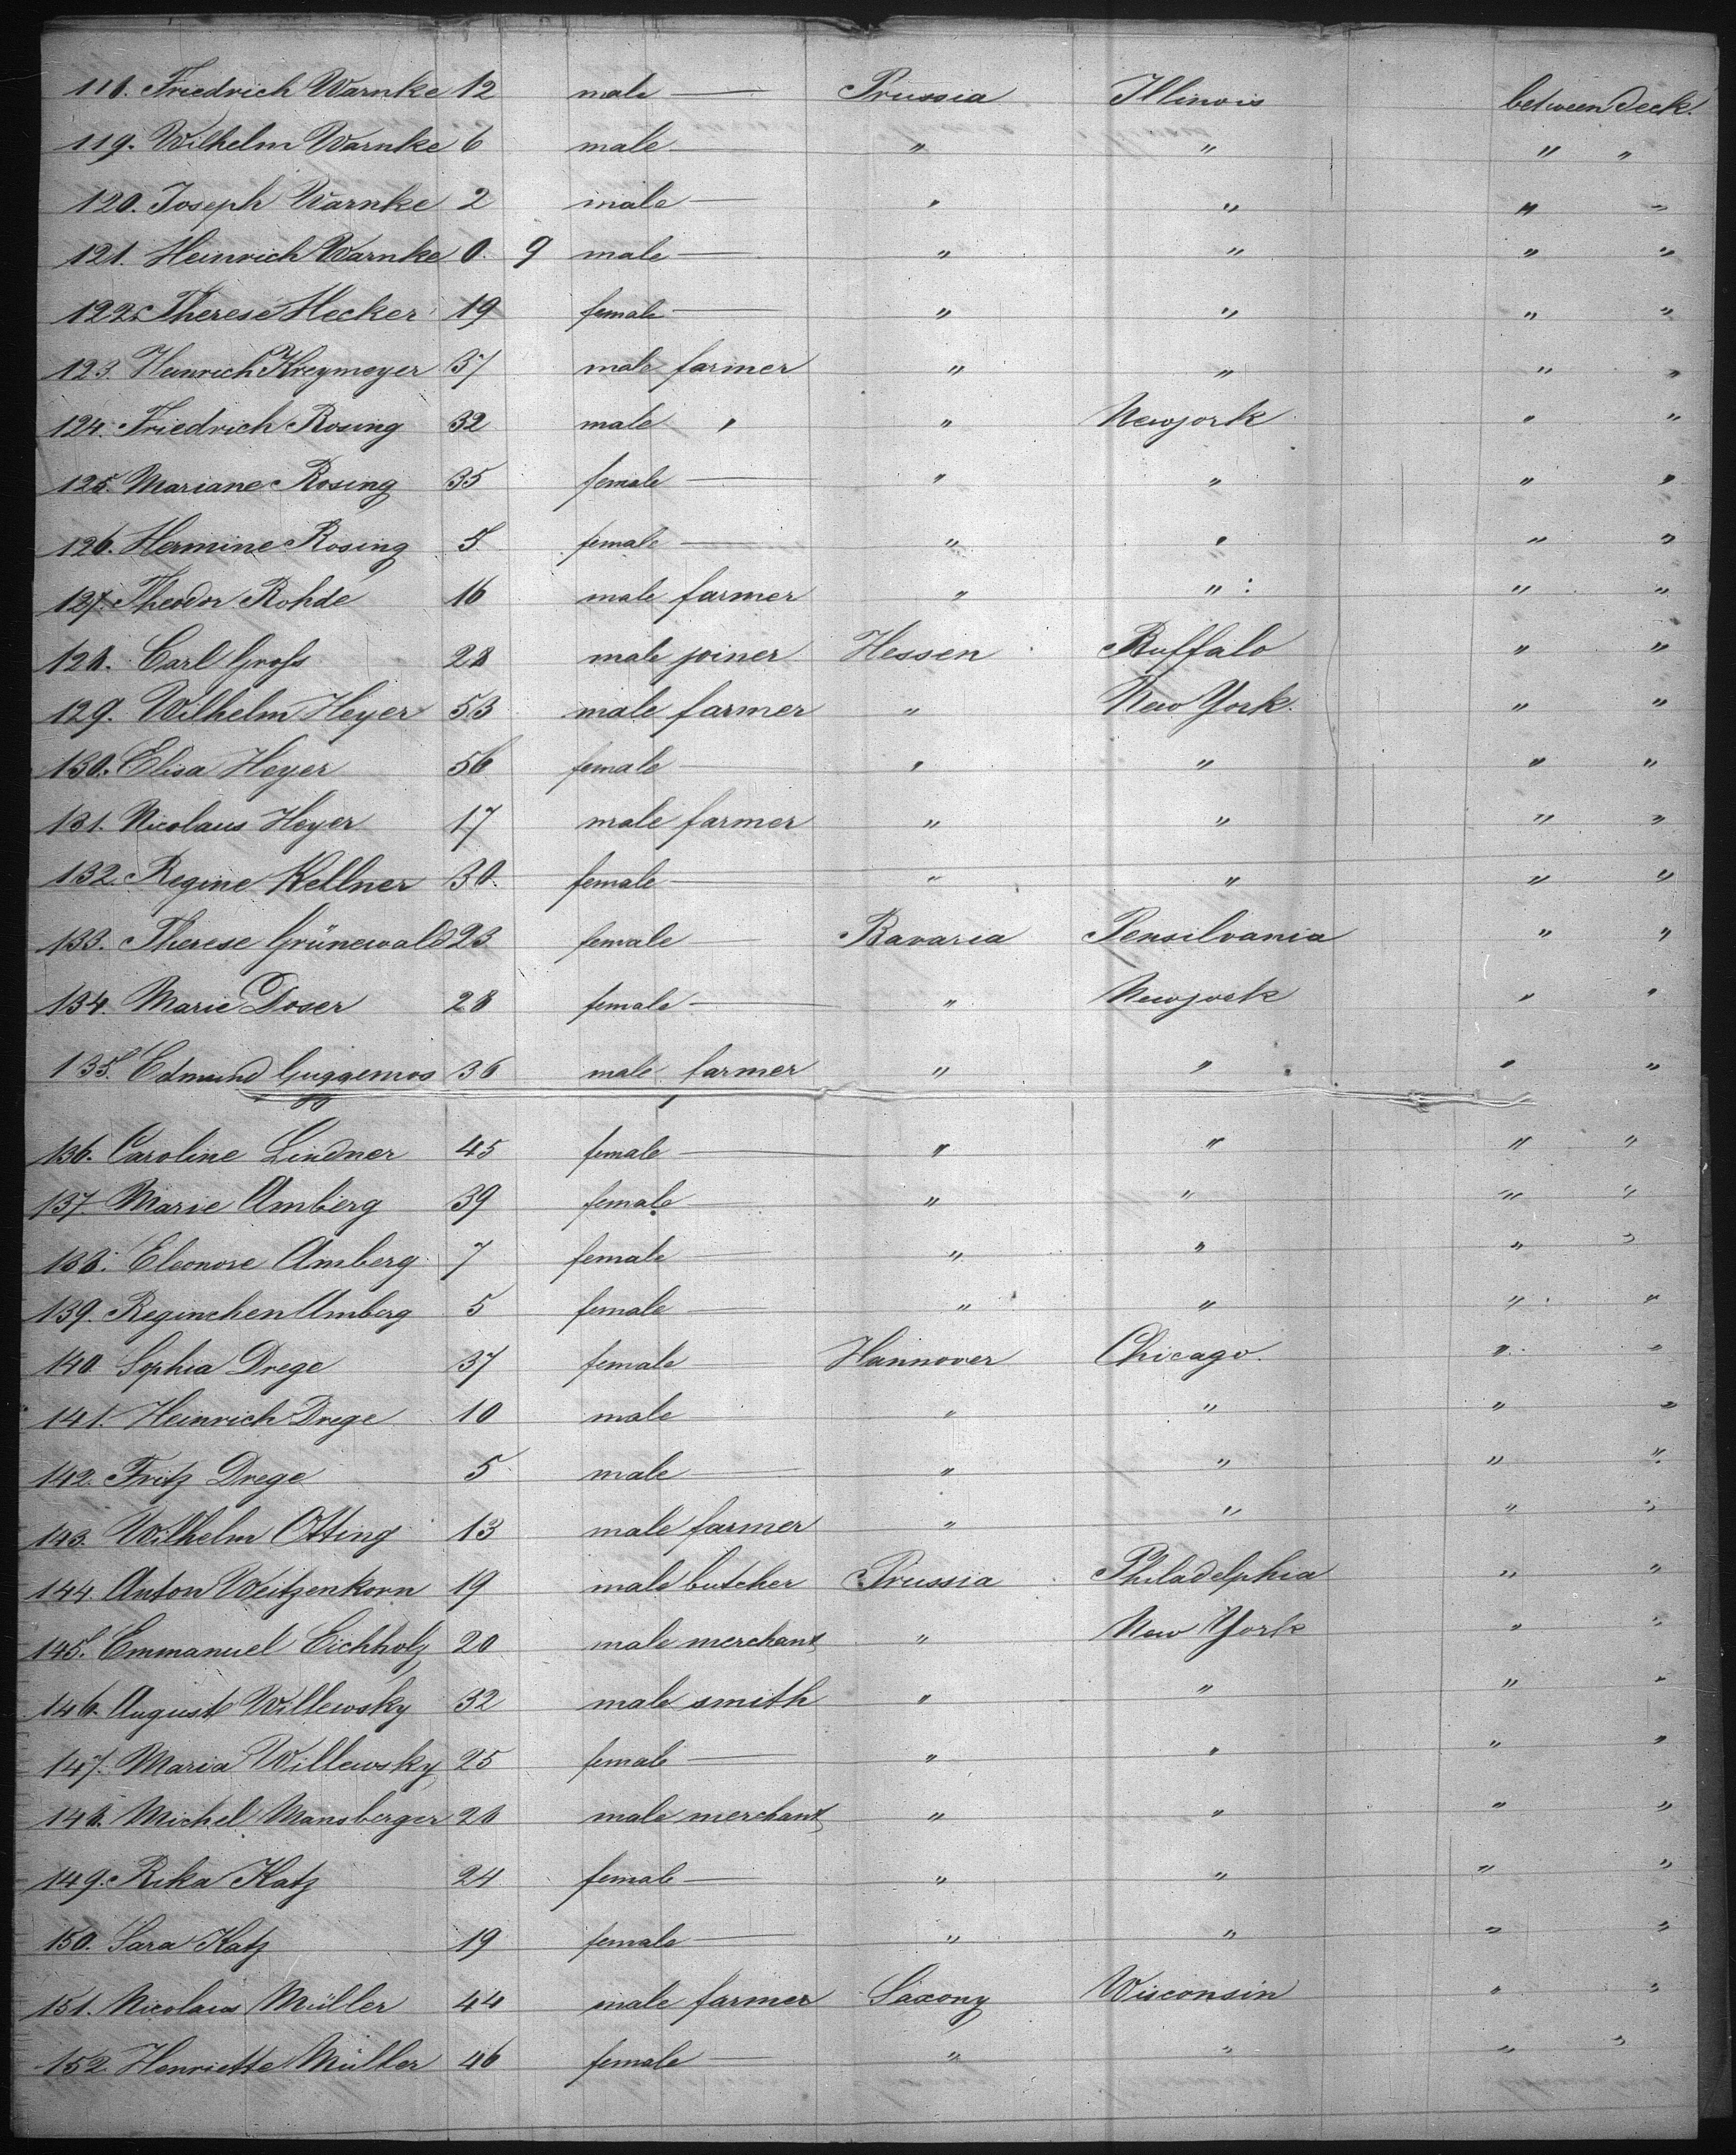 118. Friedrich Warnke 12 male — Prussia Illinois between deck.
119. Wilhelm Warnke 6 male — " " " "
120. Joseph Warnke 2 male — " " " "
121. Heinrich Warnke 0. 9 male — " " " "
122. Therese Hecker 19 female — " " " "
123. Heinrich Kreymeyer 37 male farmer " " " "
124. Friedrich Rosing 32 male " " Newjork " "
125. Mariane Rosing 35 female — " " " "
126. Hermine Rosing 5 female — " " " "
127. Theodor Rohde 16 male farmer " " " "
128. Carl Groſs 28 male joiner Hessen Buffalo " "
129. Wilhelm Heyer 53 male farmer " New York. " "
130. Elisa Heyer 56 female — " " " "
131. Nicolaus Heyer 17 male farmer " " " "
132. Regine Kellner 30. female — " " " "
133. Therese Grünewald 23 female — Bavaria Pensilvania " "
134. Marie Doser 28 female — " Newjork " "
135. Edmund Guggemos 36 male farmer " " " "
136. Caroline Lindner 45 female — " " " "
137. Marie Amberg 39 female — " " " "
138. Eleonore Amberg 7 female — " " " "
139. Reginchen Amberg 5 female — " " " "
140. Sophia Drege 37 female Hannover Chicago. " "
141. Heinrich Drege 10 male " " " "
142. Fritz Drege 5 male — " " " "
143. Wilhelm Otting 13 male farmer " " " "
144. Anton Weitzenkorn 19 male butcher Prussia Philadelphia " "
145. Emmanuel Eichholz 20 male merchant " New York " "
146. August Willewsky 32 male smith " " " "
147. Maria Willewsky 25 female — " " " "
148. Michel Mansberger 28 male merchant " " " "
149. Rika Katz 24 female — " " " "
150. Sara Katz 19 female — " " " "
151. Nicolaus Müller 44 male farmer Saxony Wisconsin " "
152. Henriette Müller 46 female — " " " "